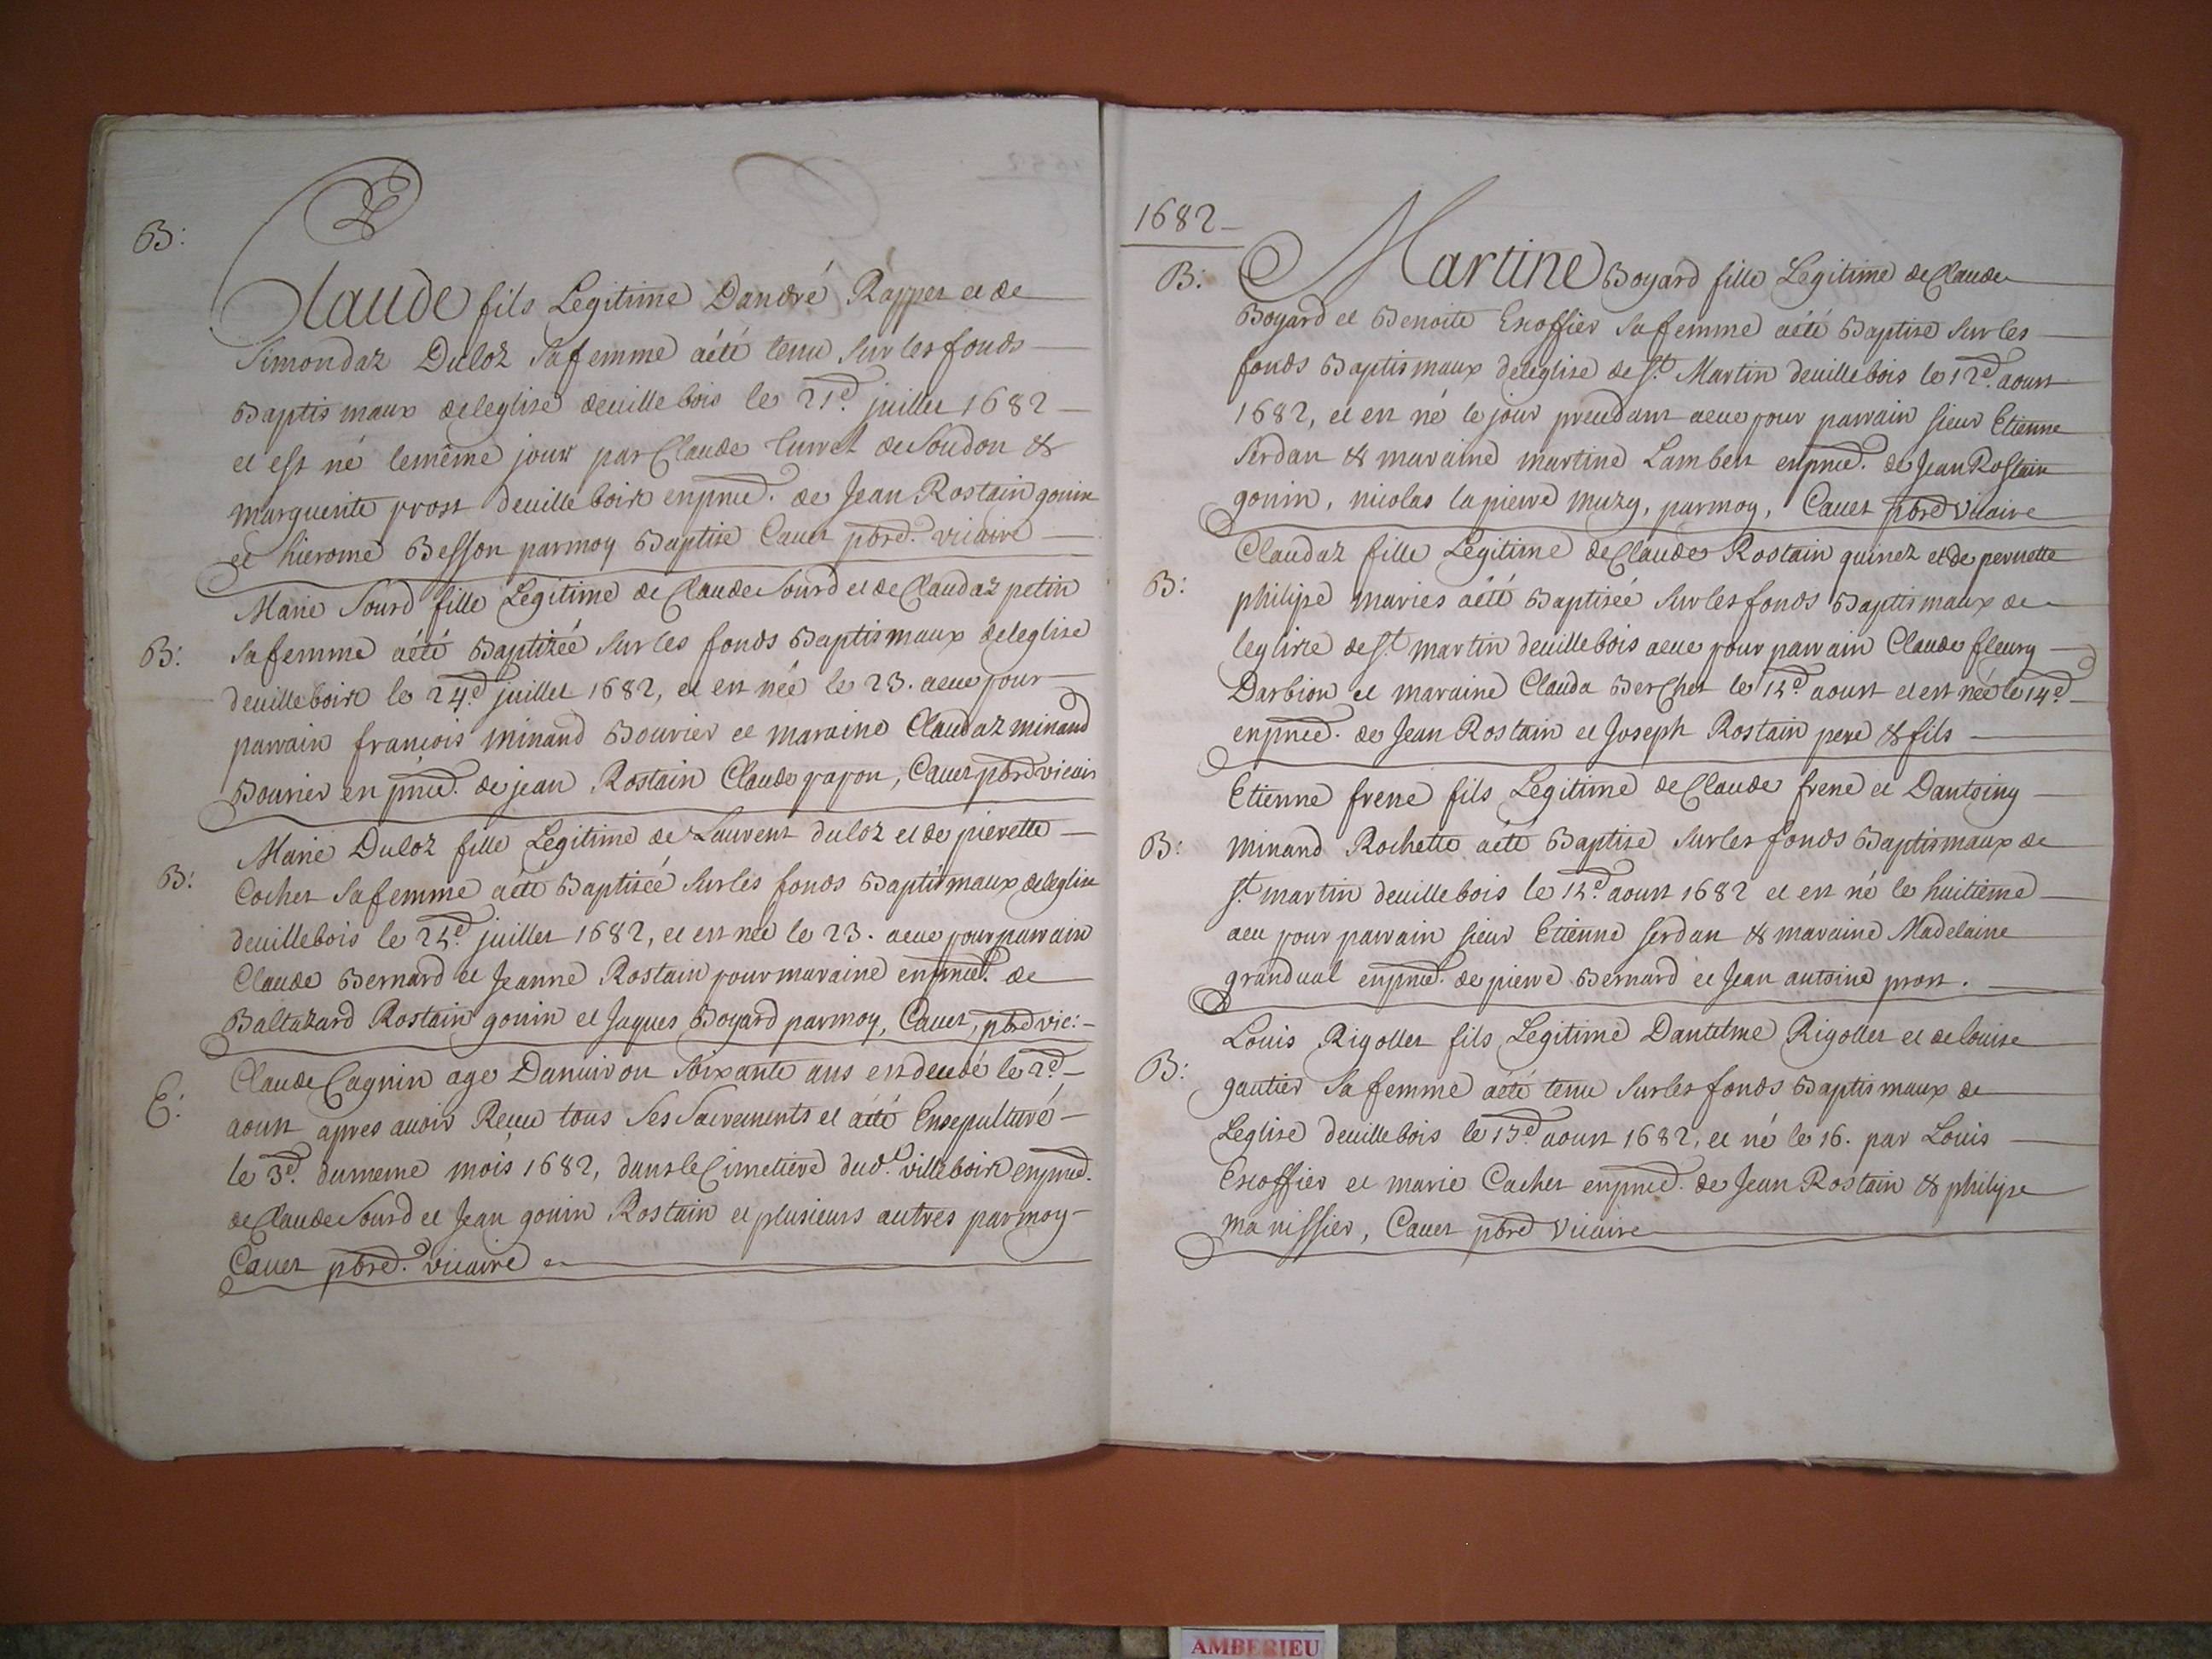 B:
Claude fils Legitime Dandré Rapper et de
Simondaz Duloz Sa femme aété tenu Sur les fonds
Baptis maux deleglise deuillebois le 21e. juillet 1682
et est né lemême jour par Claude Curret de Soudon &
marguerite prost deuilleboire enpnce. de Jean Rostain gonin
et hierome Besson parmoy Baptise Cauet pbre. vicaire
Marie Sourd fille Legitime de Claude Sourd et de Claudaz petin
B: Safemme aété Baptizéé Sur les fonds Baptismaux deleglise
deuilleboire le 24e. juillet 1682, et est néé le 23. aeue pour
parrain francois minand Bouvier et maraine Claudaz minand
Bouvier en pnce. de jean Rostain Claude papon, Cauet pbre vicair
Marie Duloz fille Legitime de Laurent duloz et de pierette
B: Cochet Safemme aété Baptiséé Sur les fonds Baptismaux deleglise
deuillebois le 25e. juillet 1682, et est néé le 23. aeue pour parrain
Claude Bernard et Jeanne Rostain pour maraine enpnce. de
Baltazard Rostain gonin et Jaques Boyard parmoy, Cauet, pbre vic:
Claude Cagnin age Danuiron Soixante ans est decedé le 2e.
E: aoust apres auoir Reçeu tous Ses Sacrements et aété Ensepulturé
le 3e. dumeme mois 1682, dans le Cimetiere dud. villeboire enpnce.
de Claude Sourd et Jean gonin Rostain et plusieurs autres parmoy
Cauet pbre. vicaire
1682
B: Martine Boyard fille Legitime de Claude
Boyard et Benoite Escoffier Safemme aété Baptise Sur les
fonds Baptismaux deleglise de St. Martin deuillebois le 12e. aoust
1682, et est né le jour precedant aeue pour parrain sieur Etienne
Serdan & maraine martine Lambert enpnce. de Jean Rostain
gonin, nicolas lapierre muzy, parmoy, Cauet pbre vicaire
Claudaz fille Legitime de Claude Rostain quinez et de pernette
B: philipe mariés aété Baptiséé Sur les fonds Baptismaux de
leglise de St. martin deuillebois aeue pour parrain Claude fleury
Darbion et maraine Clauda Berchet le 15e. aoust et est néé le 14e.
enpnce. de Jean Rostain et Joseph Rostain pere & fils
Etienne frene fils Legitime de Claude frene et Dantoiny
B: minand Rochette aété Baptise Sur les fonds Baptismaux de
St. martin deuillebois le 15e. aoust 1682 et est né le huitieme
aeu pour parrain sieur Etienne serdan & maraine Madelaine
grandual enpnce. de pierre Bernard et Jean antoine prost.
Louis Rigollet fils Legitime Dantelme Rigollet et de louise
B: gautier Sa femme aété tenu Sur les fonds Baptismaux de
Leglise deuillebois le 17e. aoust 1682, et né le 16. par Louis
Escoffier et marie Cachet enpnce. de Jean Rostain & philipe
manissier, Cauet pbre Vicaire
AMBERIEU